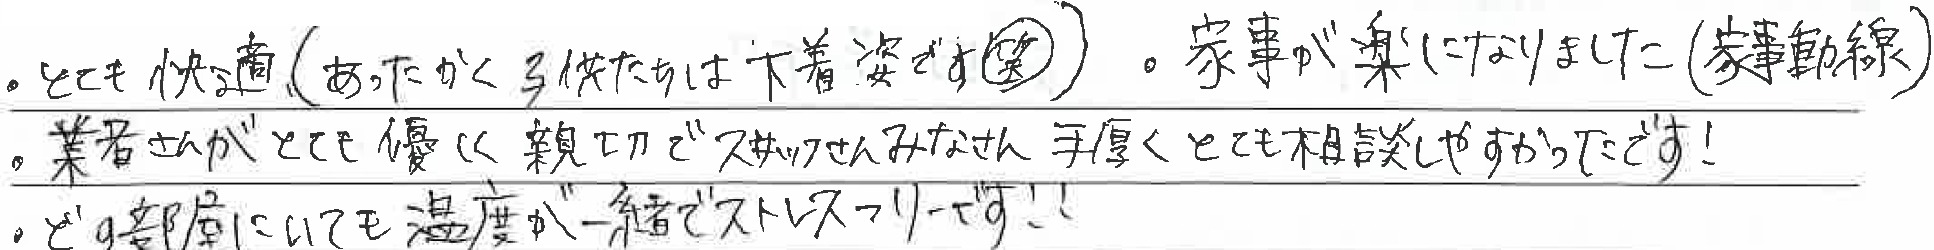 。とても快適(あったかく子供たちは下着姿です笑) 。家事が楽になりました(家事動線)
。業者さんがとても優しく親切でスタッフさんみなさん手厚くとても相談しやすかったです!
。どの部屋にいても温度が一緒でストレスフリーです!!